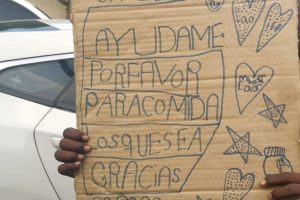 AYUDAME
PORFAVOR
PARACOMIDA
OSQUESEA
GRACIAS